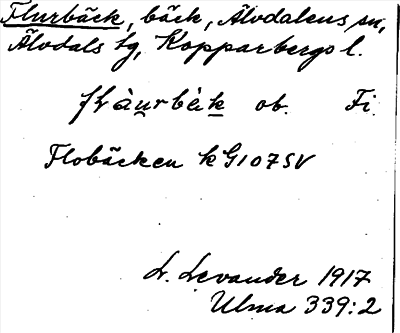 Flurbäck, bäck, Älvdalens sn,
Älvdals tg, Kopparbergs l.
ob. Fi.
Flobäcken k G107SV
L. Levander 1917
Ulma 339:2